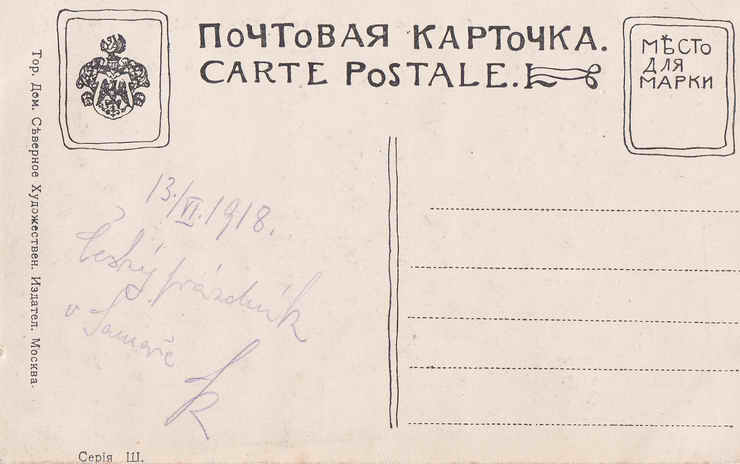 ПОЧТОВАЯ КАРТОЧКА.
CARTE POSTALE.
МѢСТО
ДЛЯ
МАРКИ
Тор. Дом. Сѣверное Художествен. Издател. Москва.
13./VI. 1918.
Český prázdnik
v Samaře
Серія III.